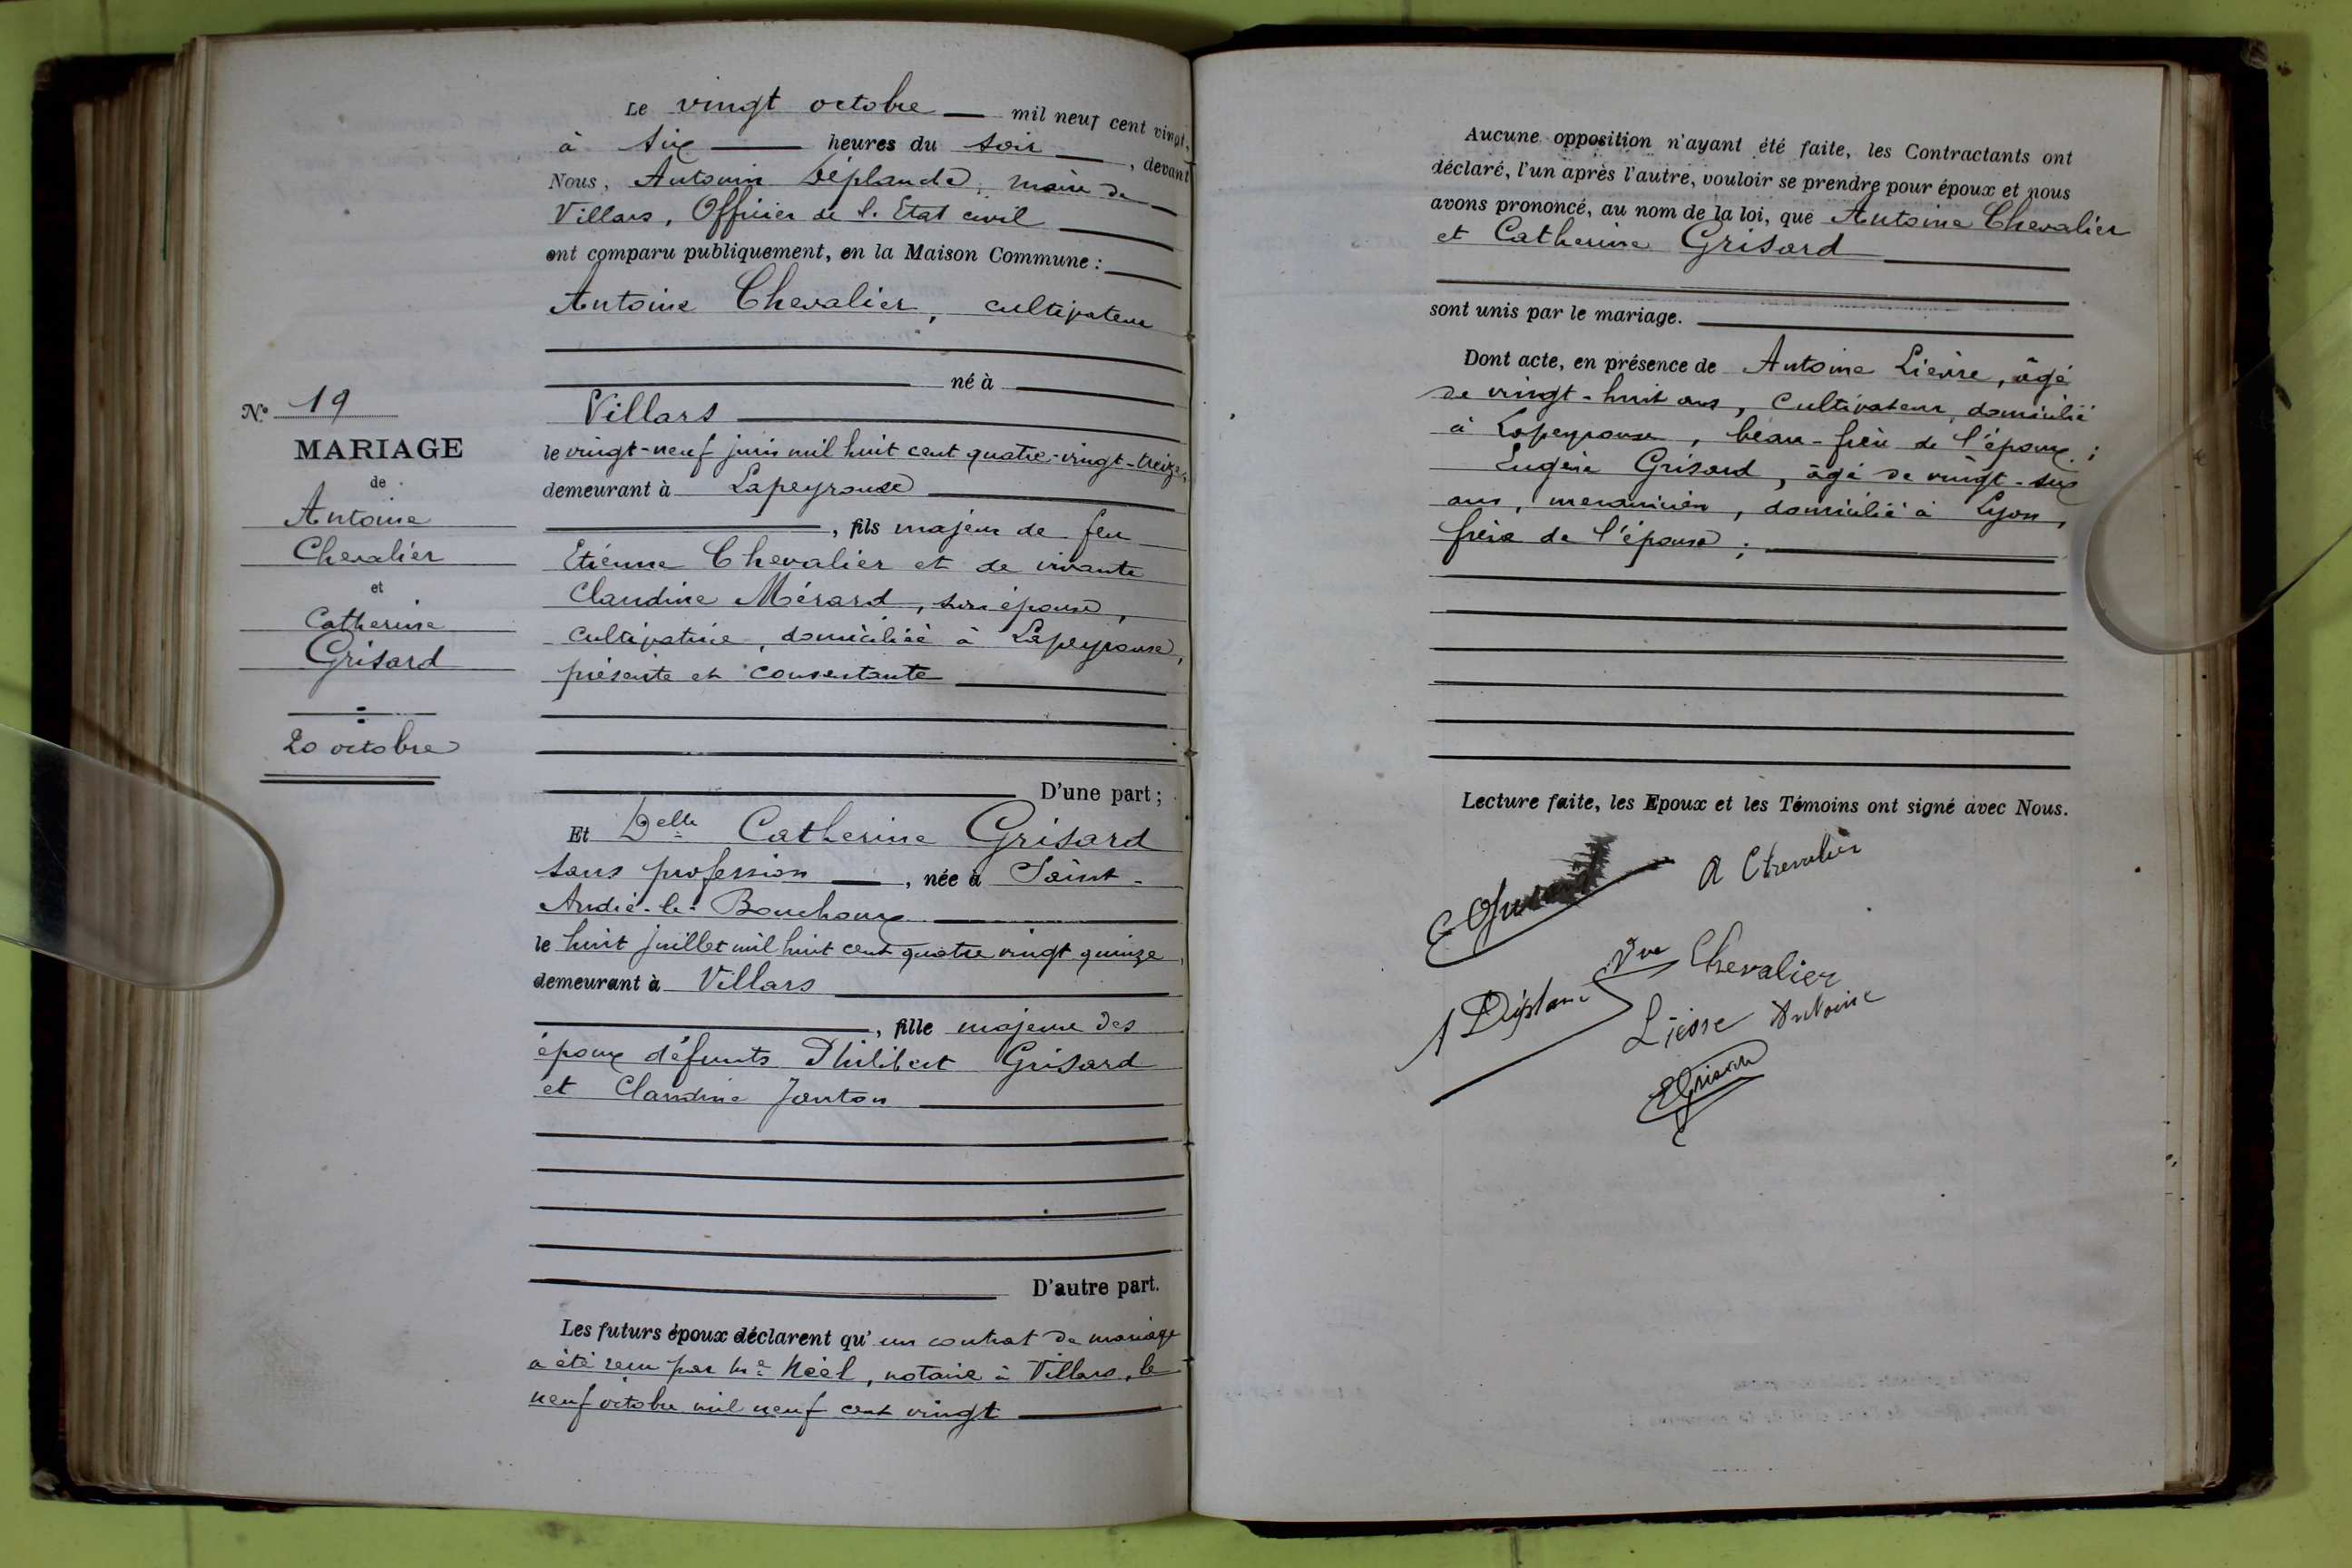 Le vingt octobre mil neuf cent vingt,
à six heures du soir, devant
Nous, Antonin Déplaude, maire de
Villars, Officier de l'Etat civil
ont comparu publiquement, en la Maison Commune :
Antoine Chevalier, cultivateur
né à
Villars
le vingt-neuf juin mil huit cent quatre-vingt-treize,
demeurant à Lapeyrouse
, fils majeur de feu
Etienne Chevalier et de vivante
Claudine Mérard, son épouse,
cultivatrice, domiciliée à Lapeyrouse,
présente et consentante
D'une part ;
Et Delle Catherine Grisard
sans profession, née à Saint-
André-le-Bouchoux
le huit juillet mil huit cent quatre vingt quinze,
demeurant à Villars
, fille majeure des
époux défunts Philibert Grisard
et Claudine Jonton
D'autre part.
Les futurs époux déclarent qu'un contrat de mariage
a été reçu par Me Noël, notaire à Villars, le
neuf octobre mil neuf cent vingt
No 19
MARIAGE
de
Antoine
Chevalier
et
Catherine
Grisard
20 octobre
Aucune opposition n'ayant été faite, les Contractants ont
déclaré, l'un après l'autre, vouloir se prendre pour époux et nous
avons prononcé, au nom de la loi, que Antoine Chevalier
et Catherine Grisard
sont unis par le mariage.
Dont acte, en présence de Antoine Lièvre, âgé
de vingt-huit ans, cultivateur, domicilié
à Lapeyrouse, beau-frère de l'époux ;
Eugène Grisard, âgé de vingt-six
ans, mécanicien, domicilié à Lyon,
frère de l'épouse ;
Lecture faite, les Epoux et les Témoins ont signé avec Nous.
A Chevalier
Vve Chevalier
Antoine
E Grisard